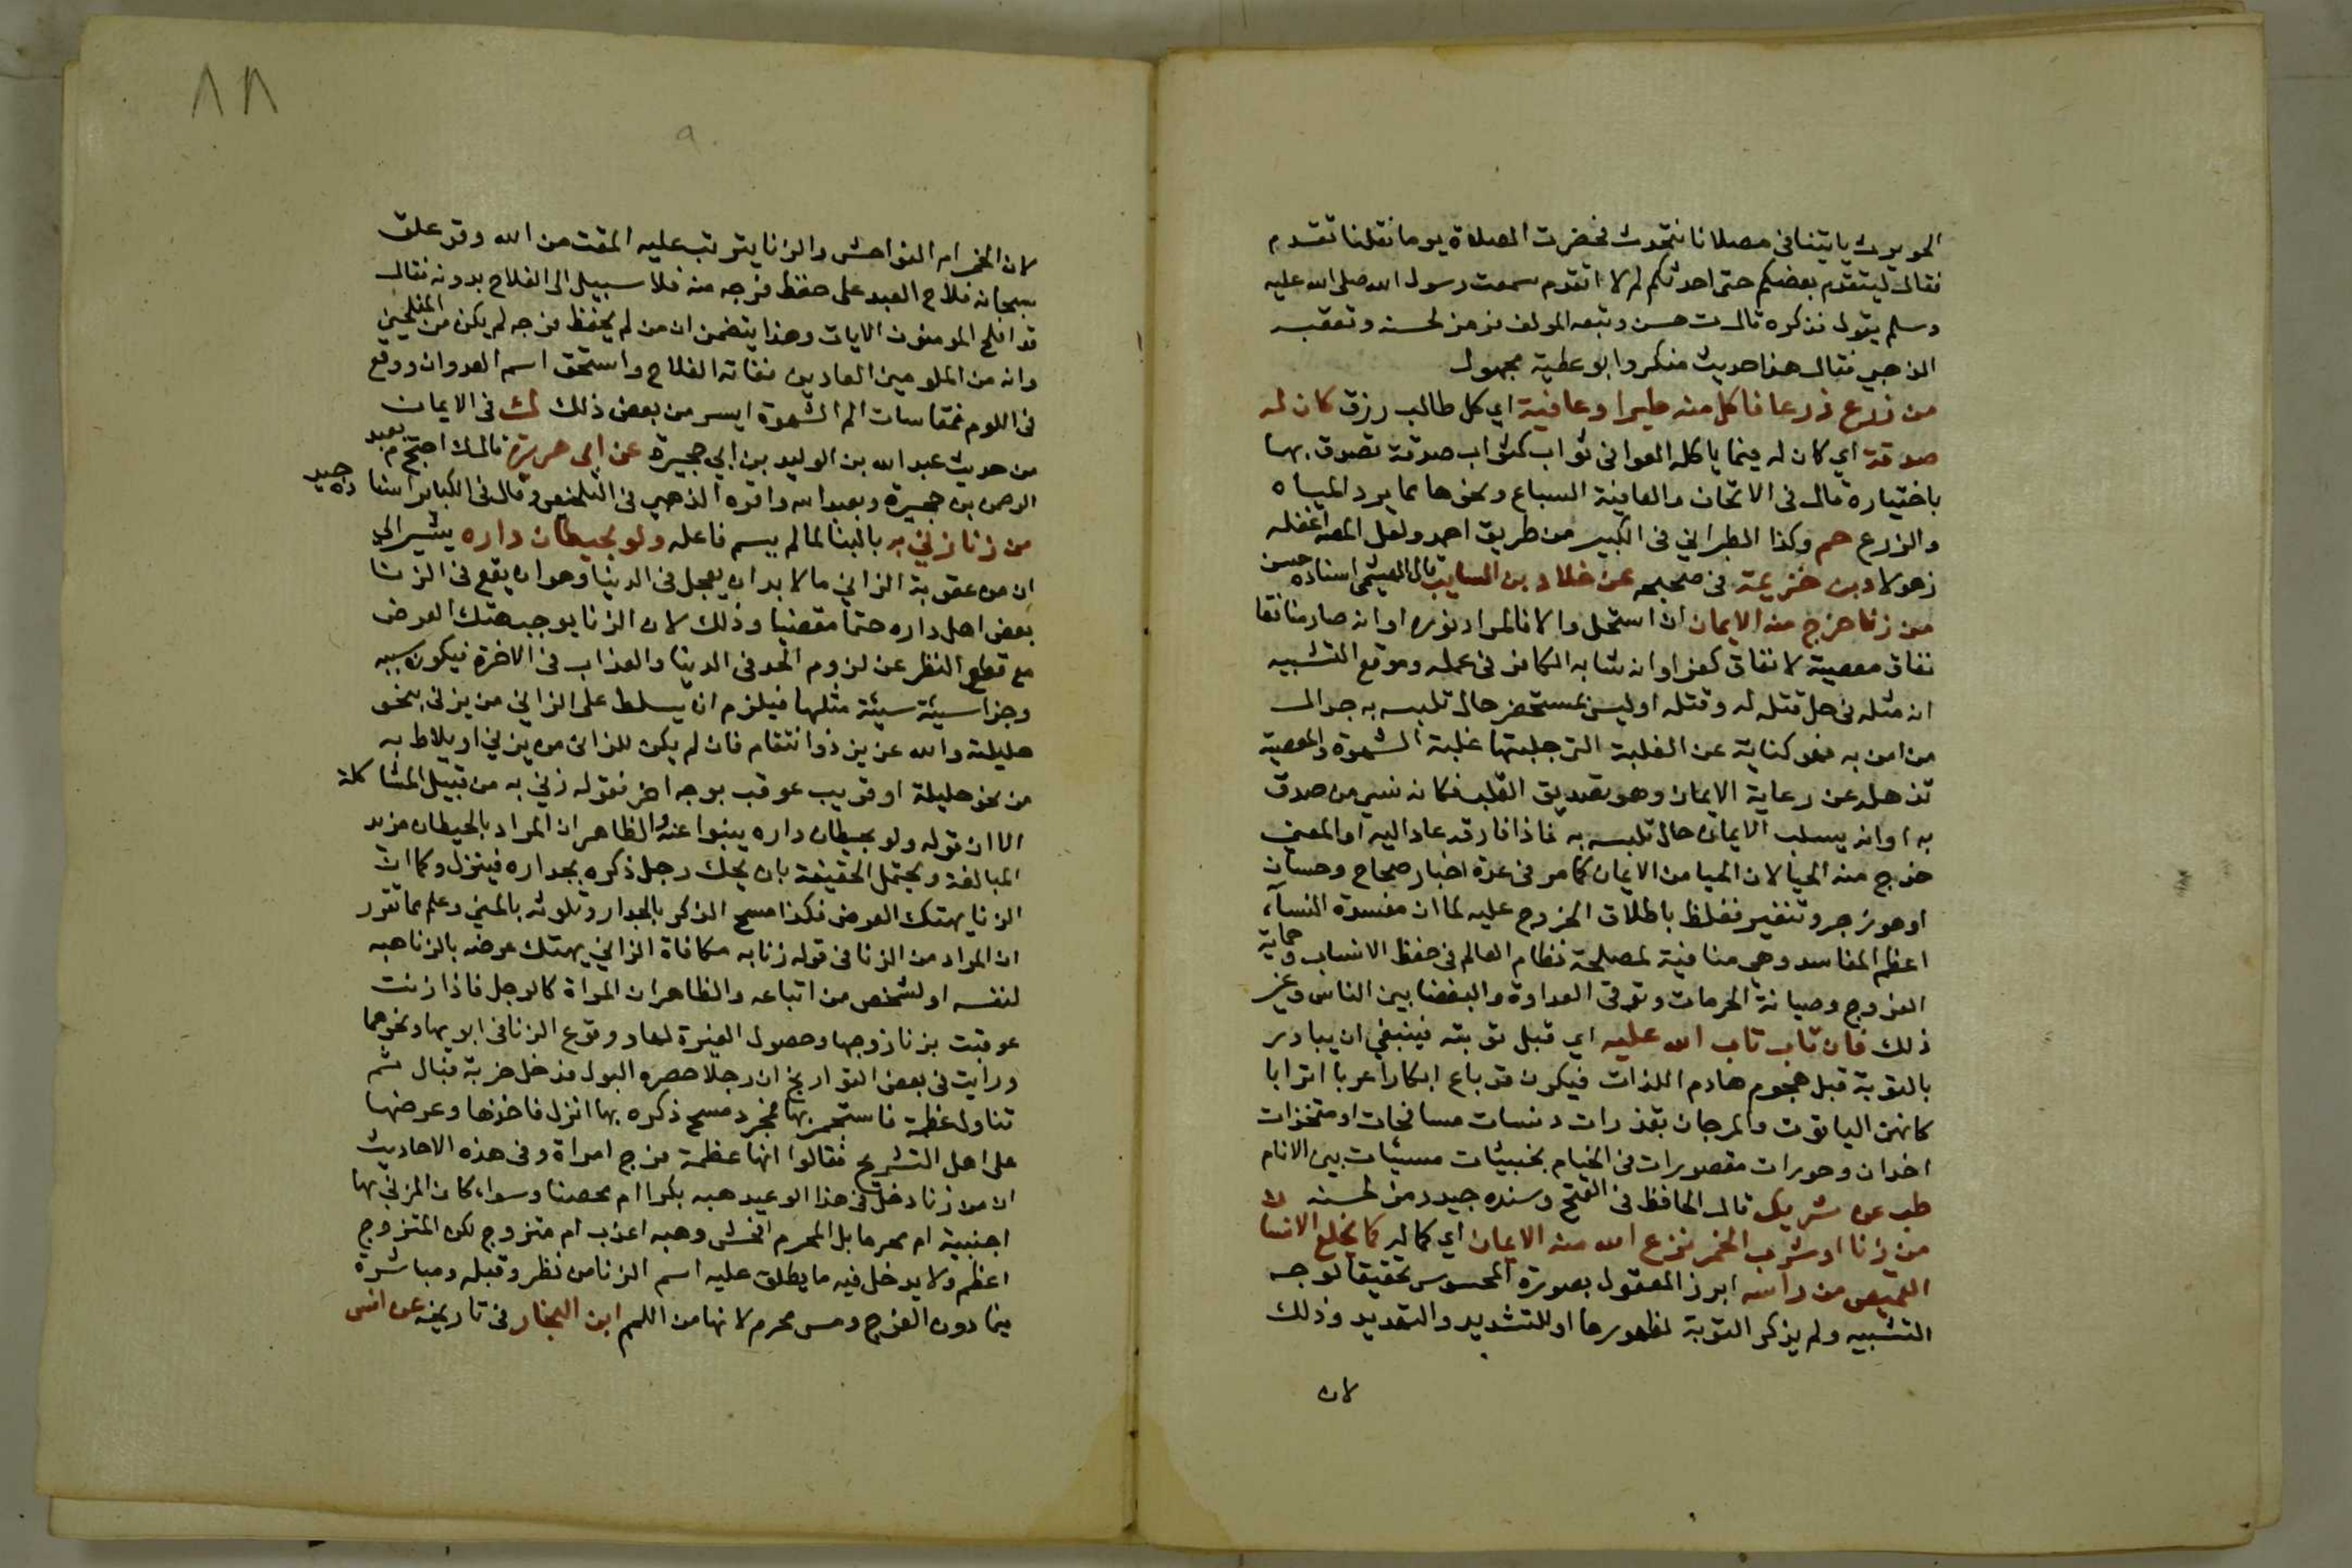 الحويرث ياتينا في مصلانا نتحدث فحضرت الصلاة يوما فقلنا تقدم
فقال ليتقدم بعضكم حتى احدثكم لم لا اتقدم سمعت رسول الله صلى الله عليه
وسلم يقول فذكره قال ت حسن وتبعه المولف فرمز لحسنه وتعقبه
الذهبي فقال هذا حديث منكر وابو عطية مجهول
من زرع زرعا فاكل منه طير او عافية اي كل طالب رزق كان له
صدقة اي كان له فيما ياكله العوافي ثواب كثواب صدقة تصدق بها
باختياره قال في الاتحاف والعافية السباع ونحوها مما يرد المياه
والزرع حم وكذا الطبراني في الكبير من طريق احمد ولعل المص اغفله
ذهولا د بن خزيمة في صحيحه عن خلاد بن السايب قال الهيثمي اسناده حسن
من زنا خرج منه الايمان ان استحل والا فالمراد نوره او انه صار منافقا
نفاق معصية لا نفاق كفر او انه شابه الكافر في عمله وموقع التشبيه
انه مثله في حل قتله له وقتله او ليس بمستحضر حال تلبسه به جلال
من امن به فهو كناية عن الغلبة التي جلبتها غلبة الشهوة والمعصية
تذهله عن رعاية الايمان وهو تصديق القلب فكانه نسي من صدق
به او انه يسلب الايمان حال تلبسه به فاذا فارقه عاد اليه او المعنى
خرج منه الحيا لان الحيا من الايمان كما مر في عدة اخبار صحاح وحسان
او هو زجر وتنفير فغلظ باطلاق الخروج عليه لما ان مفسدة النساء
اعظم المفاسد وهي منافية لمصلحة نظام العالم في حفظ الانساب وحماية
الفروج وصيانة الحرمات وتوقي العداوة والبغضا بين الناس وغير
ذلك فان تاب تاب الله عليه اي قبل توبته فينبغي ان يبادر
بالتوبة قبل هجوم هادم اللذات فيكون قد باع ابكارا عربا اترابا
كانهن الياقوت والمرجان بقذرات دنسات مسافحات او متخذات
اخدان وحورات مقصورات في الخيام بخبيثات مسيبات بين الانام
طب عن شريك قال الحافظ في الفتح وسنده جيد رمز لحسنه
من زنا او شرب الخمر نزع الله منه الايمان اي كماله كما يخلع الانسان
القميص من راسه ابرز المعقول بصورة المحسوس تحقيقا لوجه
التشبيه ولم يذكر التوبة لظهورها او للتشديد والتهديد وذلك
لان
٨٨
لان الخمر ام الفواحش والزنا يترتب عليه المقت من الله وقد علق
سبحانه فلاح العبد على حفظ فرجه منه فلا سبيل الى الفلاح بدونه فقال
قد افلح المومنون الايات وهذا يتضمن ان من لم يحفظ فرجه لم يكن من المفلحين
وانه من الملومين العادين ففاته الفلاح واستحق اسم العدوان ووقع
في اللوم فمقاسات الم الشهوة ايسر من بعض ذلك ك في الايمان
من حديث عبد الله بن الوليد بن ابي حجيرة عن ابي هريرة قال ك احتج م بعبد
الرحمن بن حجيرة وبعبد الله واقره الذهبي في التلخيص وقال في الكبائر اسناده جيد
من زنا زني به بالبنا لما لم يسم فاعله ولو بحيطان داره يشير الى
ان من عقوبة الزاني ما لا بد ان يعجل في الدنيا وهو ان يقع في الزنا
بعض اهل داره حتما مقضيا وذلك لان الزنا يوجب هتك العرض
مع قطع النظر عن لزوم الحد في الدنيا والعذاب في الاخرة فيكون سيئه
وجزا سيئة سيئة مثلها فيلزم ان يسلط على الزاني من يزني بنحو
حليلته والله عزيز ذو انتقام فان لم يكن للزاني من يزني او يلاط به
من نحو حليلة او قريب عوقب بوجه اخر فقوله زني به من قبيل المشاكلة
الا ان قوله ولو بحيطان داره ينبوا عنه والظاهر ان المراد بالحيطان مزيد
المبالغة ويحتمل الحقيقة بان يحك رجل ذكره بجداره فينزل وكما ان
الزنا يهتك العرض فكذا مسح الذكر بالجدار وتلوثه بالمني وعلم مما تقرر
ان المراد من الزنا في قوله زنا به مكافاة الزاني بهتك عرضه بالزنا هبه
لنفسه او لشخص من اتباعه والظاهر ان المراة كالرجل فاذا زنت
عوقبت بزنا زوجها وحصول الغيرة لها ووقوع الزنا في ابويها ونحوهما
ورايت في بعض التواريخ ان رجلا حصره البول فدخل خربة فبال ثم
تناول عظمة فاستجمر بها فبمجرد مسح ذكره بها انزل فاخذها وعرضها
على اهل التشريح فقالوا انها عظمة فرج امراة وفي هذه الاحاديث
ان من زنا دخل في هذا الوعيد هبه بكرا ام محصنا وسواء كان المزني بها
اجنبية ام محرما بل المحرم افحش وهبه اعزب ام متزوج لكن المتزوج
اعظم ولا يدخل فيه ما يطلق عليه اسم الزنا من نظر وقبله ومباشرة
فيما دون الفرج ومس محرم لانها من اللمم ابن النجار في تاريخه عن انس